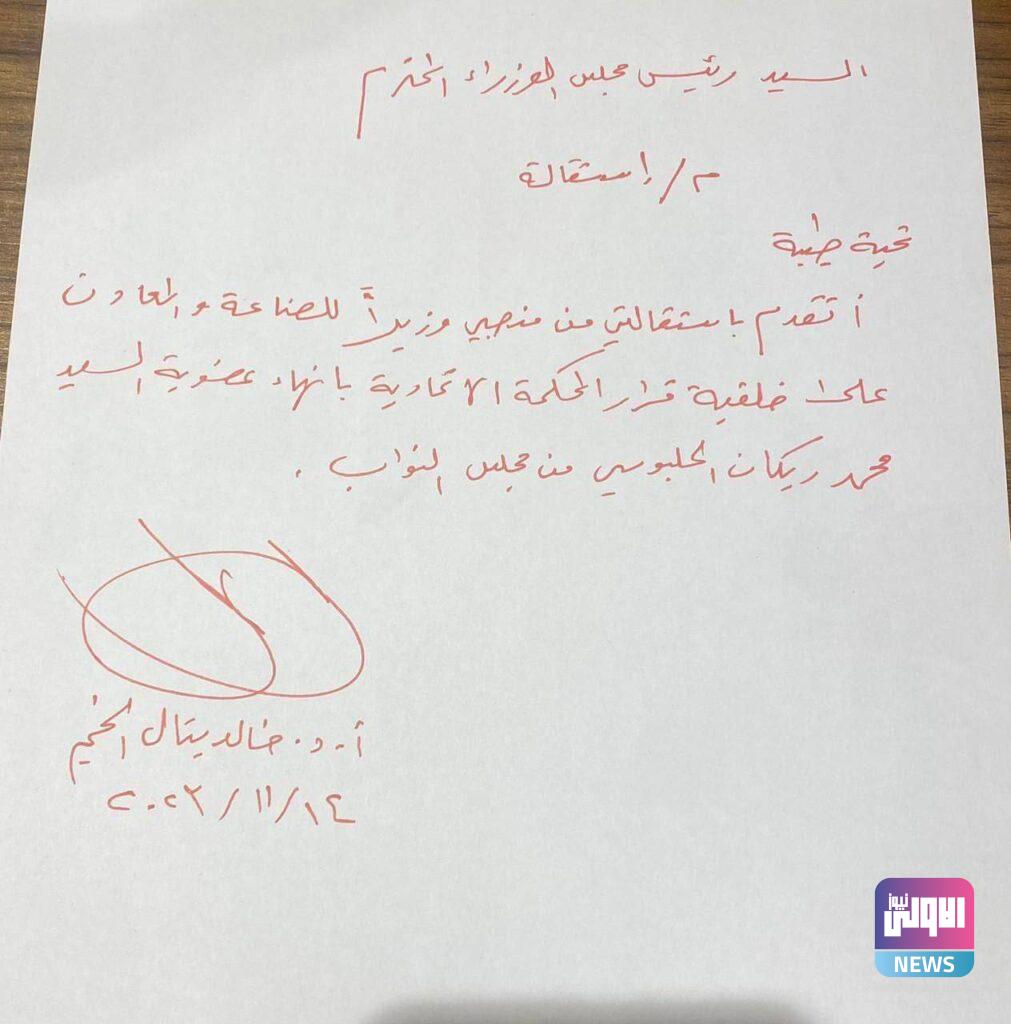 السيد رئيس مجلس الوزراء المحترم
م/ إستقالة
تحية طيبة
أتقدم باستقالتي من منصبي وزيراً للصناعة والمعادن
على خلفية قرار المحكمة الاتحادية بانهاء عضوية السيد
محمد ريكان الحلبوسي من مجلس النواب .
أ.د. خالد بتال النجم
٢٠٢٣/١١/١٤
الاولى نيوز
NEWS